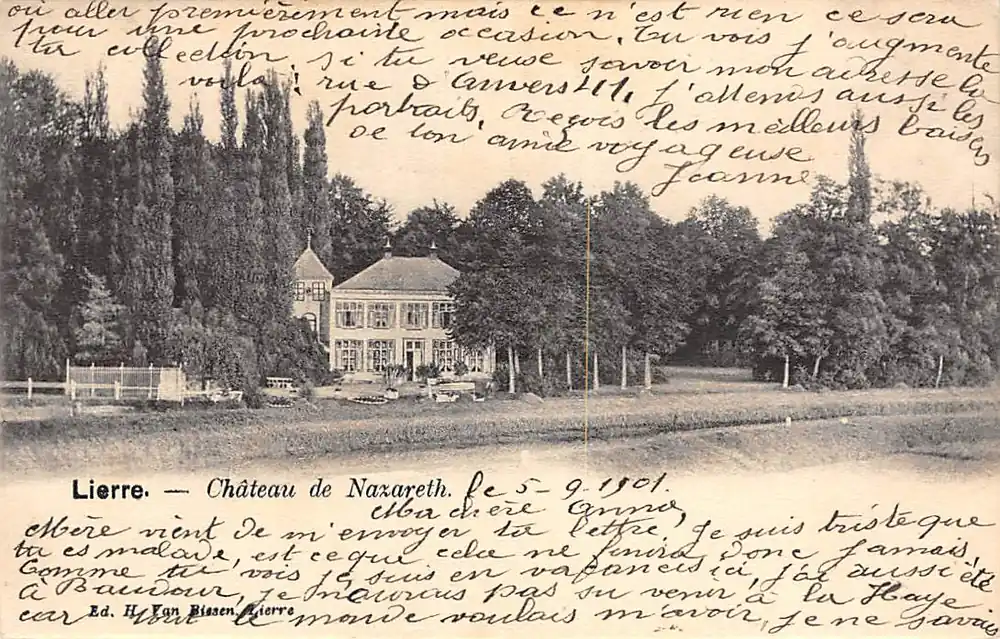 où aller premièrement mais ce n'est rien ce sera
pour une prochaine occasion. Tu vois j'augmente
ta collection, si tu veuse savoir mon adresse la
voilà: rue d'Anvers 41, j'attends aussi les
portraits. Reçois les meilleurs baisers
de ton amie voyageuse
Jeanne
Lierre. — Château de Nazareth. le 5-9-1901.
Ma chère Anna,
Mère vient de m'envoyer ta lettre, je suis triste que
tu es malade, est ce que cela ne finira donc jamais.
Comme tu vois je suis en vacances ici, j'ai aussi été
à Baudour, je n'aurais pas su venir à la Haye
Ed. H. Van Bissen, Lierre
car tout le monde voulais m'avoir, je ne savais